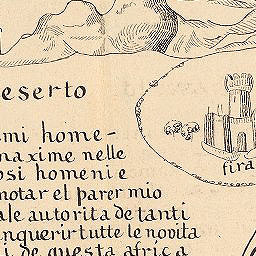 eserto
emi home-
maxime nelle
osi homeni e
notar el parer mio
ale autorita de tanti
inquerir tutte le novita
i de questa africa
fira